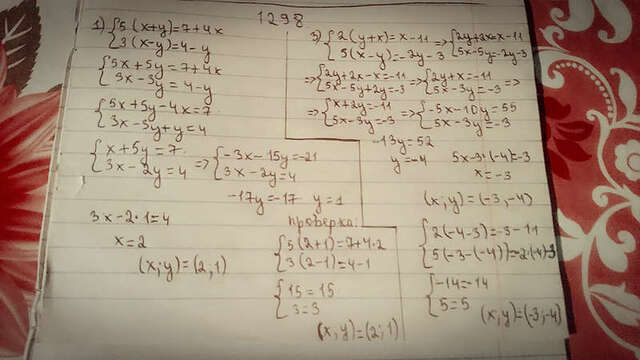 1298
1) {5(x+y)=7+4x
3(x-y)=4-y
{5x+5y=7+4x
3x-3y=4-y
{5x+5y-4x=7
3x-3y+y=4
{x+5y=7
3x-2y=4 => {-3x-15y=-21
3x-2y=4
-17y=-17 y=1
3x-2·1=4
x=2
(x;y)=(2;1)
проверка:
{5(2+1)=7+4·2
3(2-1)=4-1
{15=15
3=3
(x;y)=(2;1)
3) {2(y+x)=x-11
5(x-y)=-2y-3 => {2y+2x=x-11
5x-5y=-2y-3
=> {2y+2x-x=-11
5x-5y+2y=-3 => {2y+x=-11
5x-3y=-3 =>
=> {x+2y=-11
5x-3y=-3 => {-5x-10y=55
5x-3y=-3
-13y=52
y=-4
5x-3·(-4)=-3
x=-3
(x;y)=(-3;-4)
{2(-4-3)=-3-11
5(-3-(-4))=-2·(-4)-3
{-14=-14
5=5
(x;y)=(-3;-4)